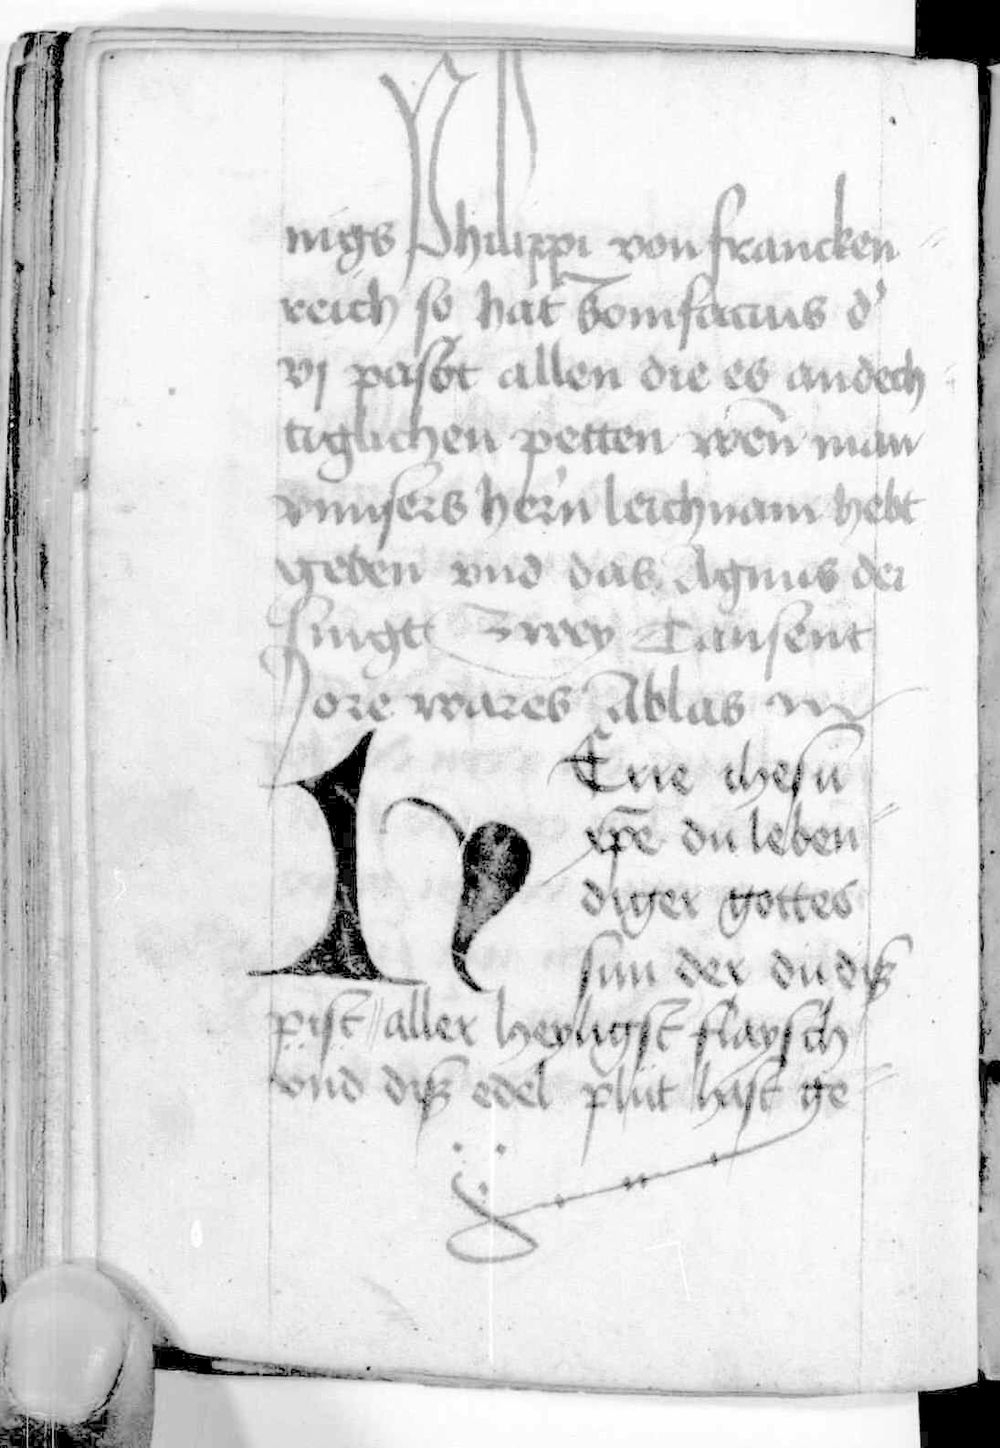 nigs Philippi von francken
reich so hat Bonifacius d'
vj pabst allen die es andech
tiglichen petten wen̄ man
vnnsers her'n leichnam hebt
geben vnd das Agnus dei
singt Zwey Tausent
Jore wares Ablas
H Erre ihesu
xp̄e du leben
diger gottes
sun der du diß
pist aller heyligst flaysch
vnd diß edel plut hast ge